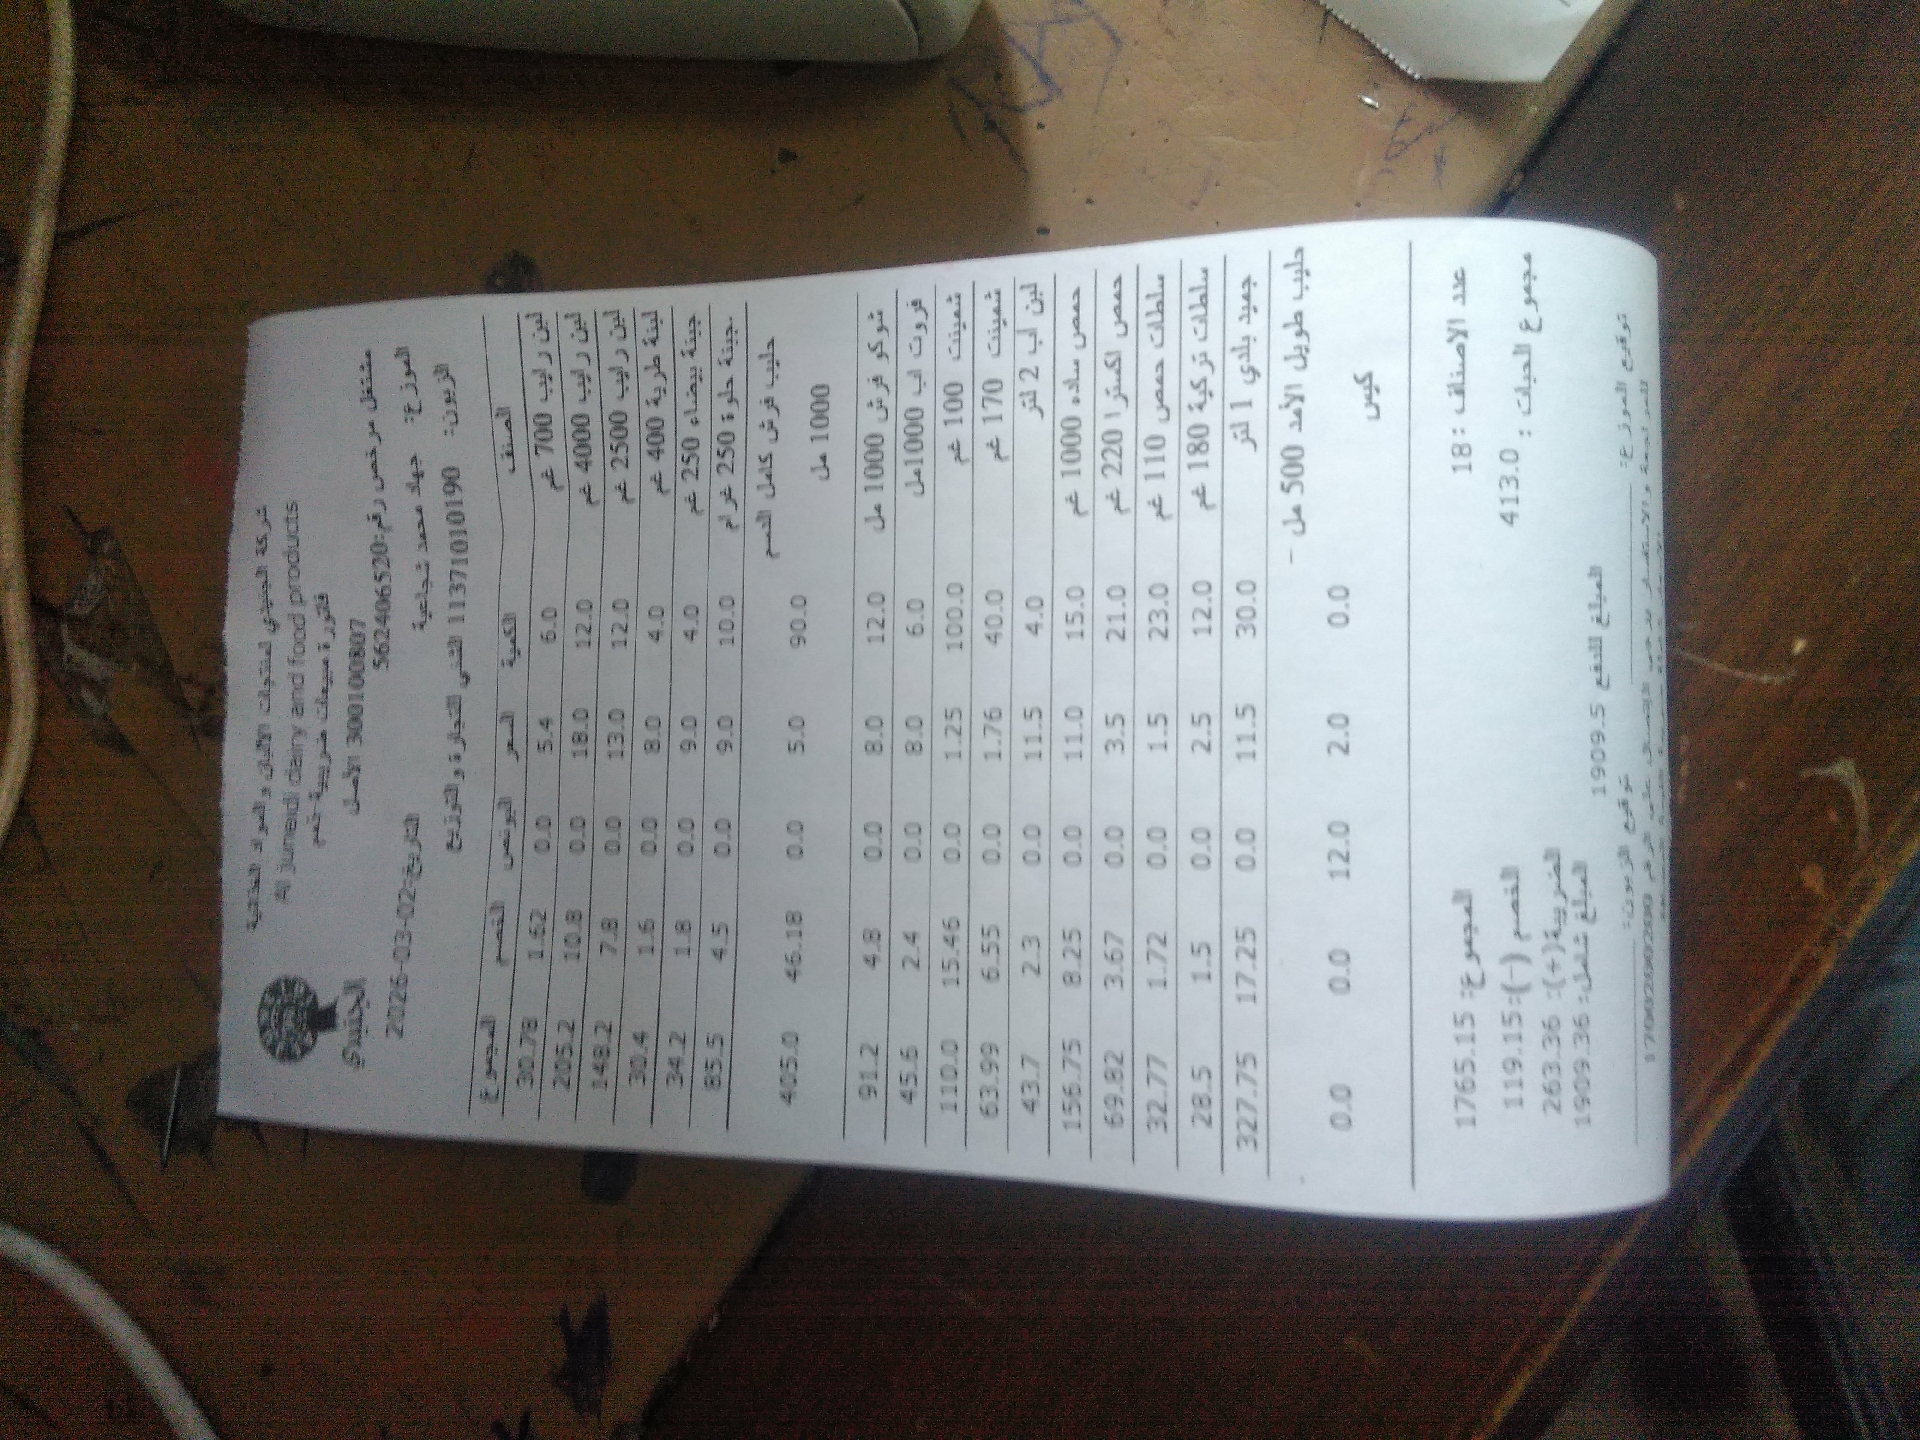 شركة الجنيدي لمنتجات الألبان والمواد الغذائية
Al juneidi dairy and food products
فاتورة مبيعات ضريبية-خصم
300100807 الأصل
الجنيدي
مشتغل مرخص رقم:562406520
الموزع: جهاد محمد شجاعية التاريخ:02-03-2026
الزبون: 1137101190 للتجارة والتوزيع
الصنف الكمية السعر البونص الخصم المجموع
لبن رايب 700 غم 6.0 5.4 0.0 1.62 30.78
لبن رايب 4000 غم 12.0 18.0 0.0 10.8 205.2
لبن رايب 2500 غم 12.0 13.0 0.0 7.8 148.2
لبنة طرية 400 غم 4.0 8.0 0.0 1.6 30.4
جبنة بيضاء 250 غم 4.0 9.0 0.0 1.8 34.2
جبنة حلوة 250 غرام 10.0 9.0 0.0 4.5 85.5
حليب فرش كامل الدسم 90.0 5.0 0.0 46.18 405.0
1000 مل
شوكو فرش 1000 مل 12.0 8.0 0.0 4.8 91.2
فروت اب 1000مل 6.0 8.0 0.0 2.4 45.6
شمينت 100 غم 100.0 1.25 0.0 15.46 110.0
شمينت 170 غم 40.0 1.76 0.0 6.55 63.99
لبن اب 2 لتر 4.0 11.5 0.0 2.3 43.7
حمص ساده 1000 غم 15.0 11.0 0.0 8.25 156.75
حمص اكسترا 220 غم 21.0 3.5 0.0 3.67 69.82
سلطات حمص 110 غم 23.0 1.5 0.0 1.72 32.77
سلطات تركية 180 غم 12.0 2.5 0.0 1.5 28.5
جميد بلدي 1 لتر 30.0 11.5 0.0 17.25 327.75
حليب طويل الأمد 500 مل -
كيس 0.0 2.0 12.0 0.0 0.0
عدد الاصناف: 18 المجموع: 1765.15
مجموع الحبات: 413.0 الخصم (-):119.15
الضريبة(+): 263.36
المبلغ شامل: 1909.36
المبلغ للدفع 1909.5
توقيع الموزع: توقيع الزبون:
للمراجعة والاستفسار يرجى الاتصال على الرقم 1700200200